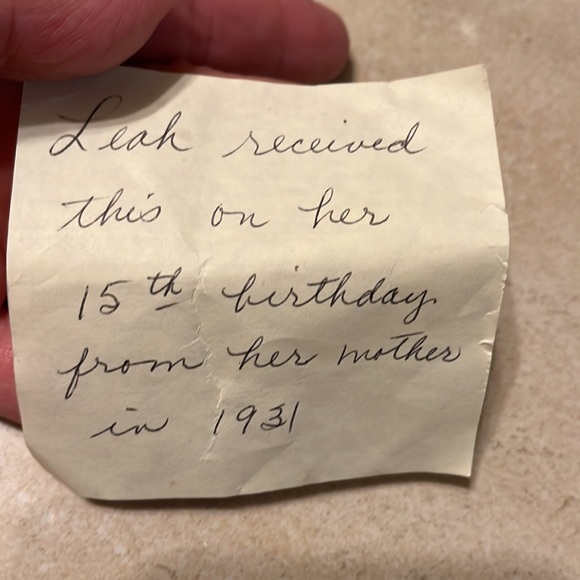 Leah received
this on her
15th birthday
from her mother
in 1931